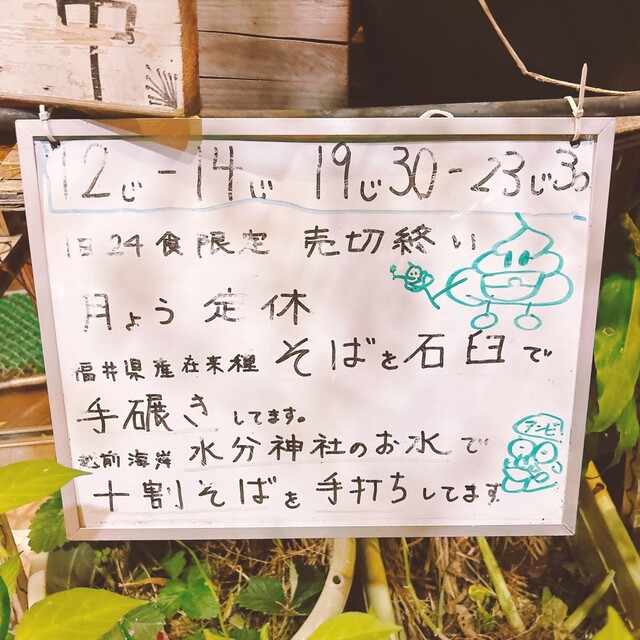 12じ-14じ 19じ30-23じ30
1日24食限定 売切終い
月よう定休
福井県産在来種 そばを石臼で
手碾きしてます。
越前海岸 水分神社のお水で
十割そばを手打ちしてます